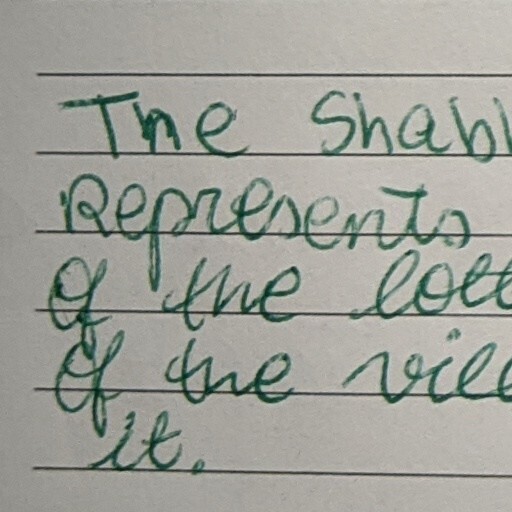 The Shabb
Represents
Of the lott
Of the vill
it.